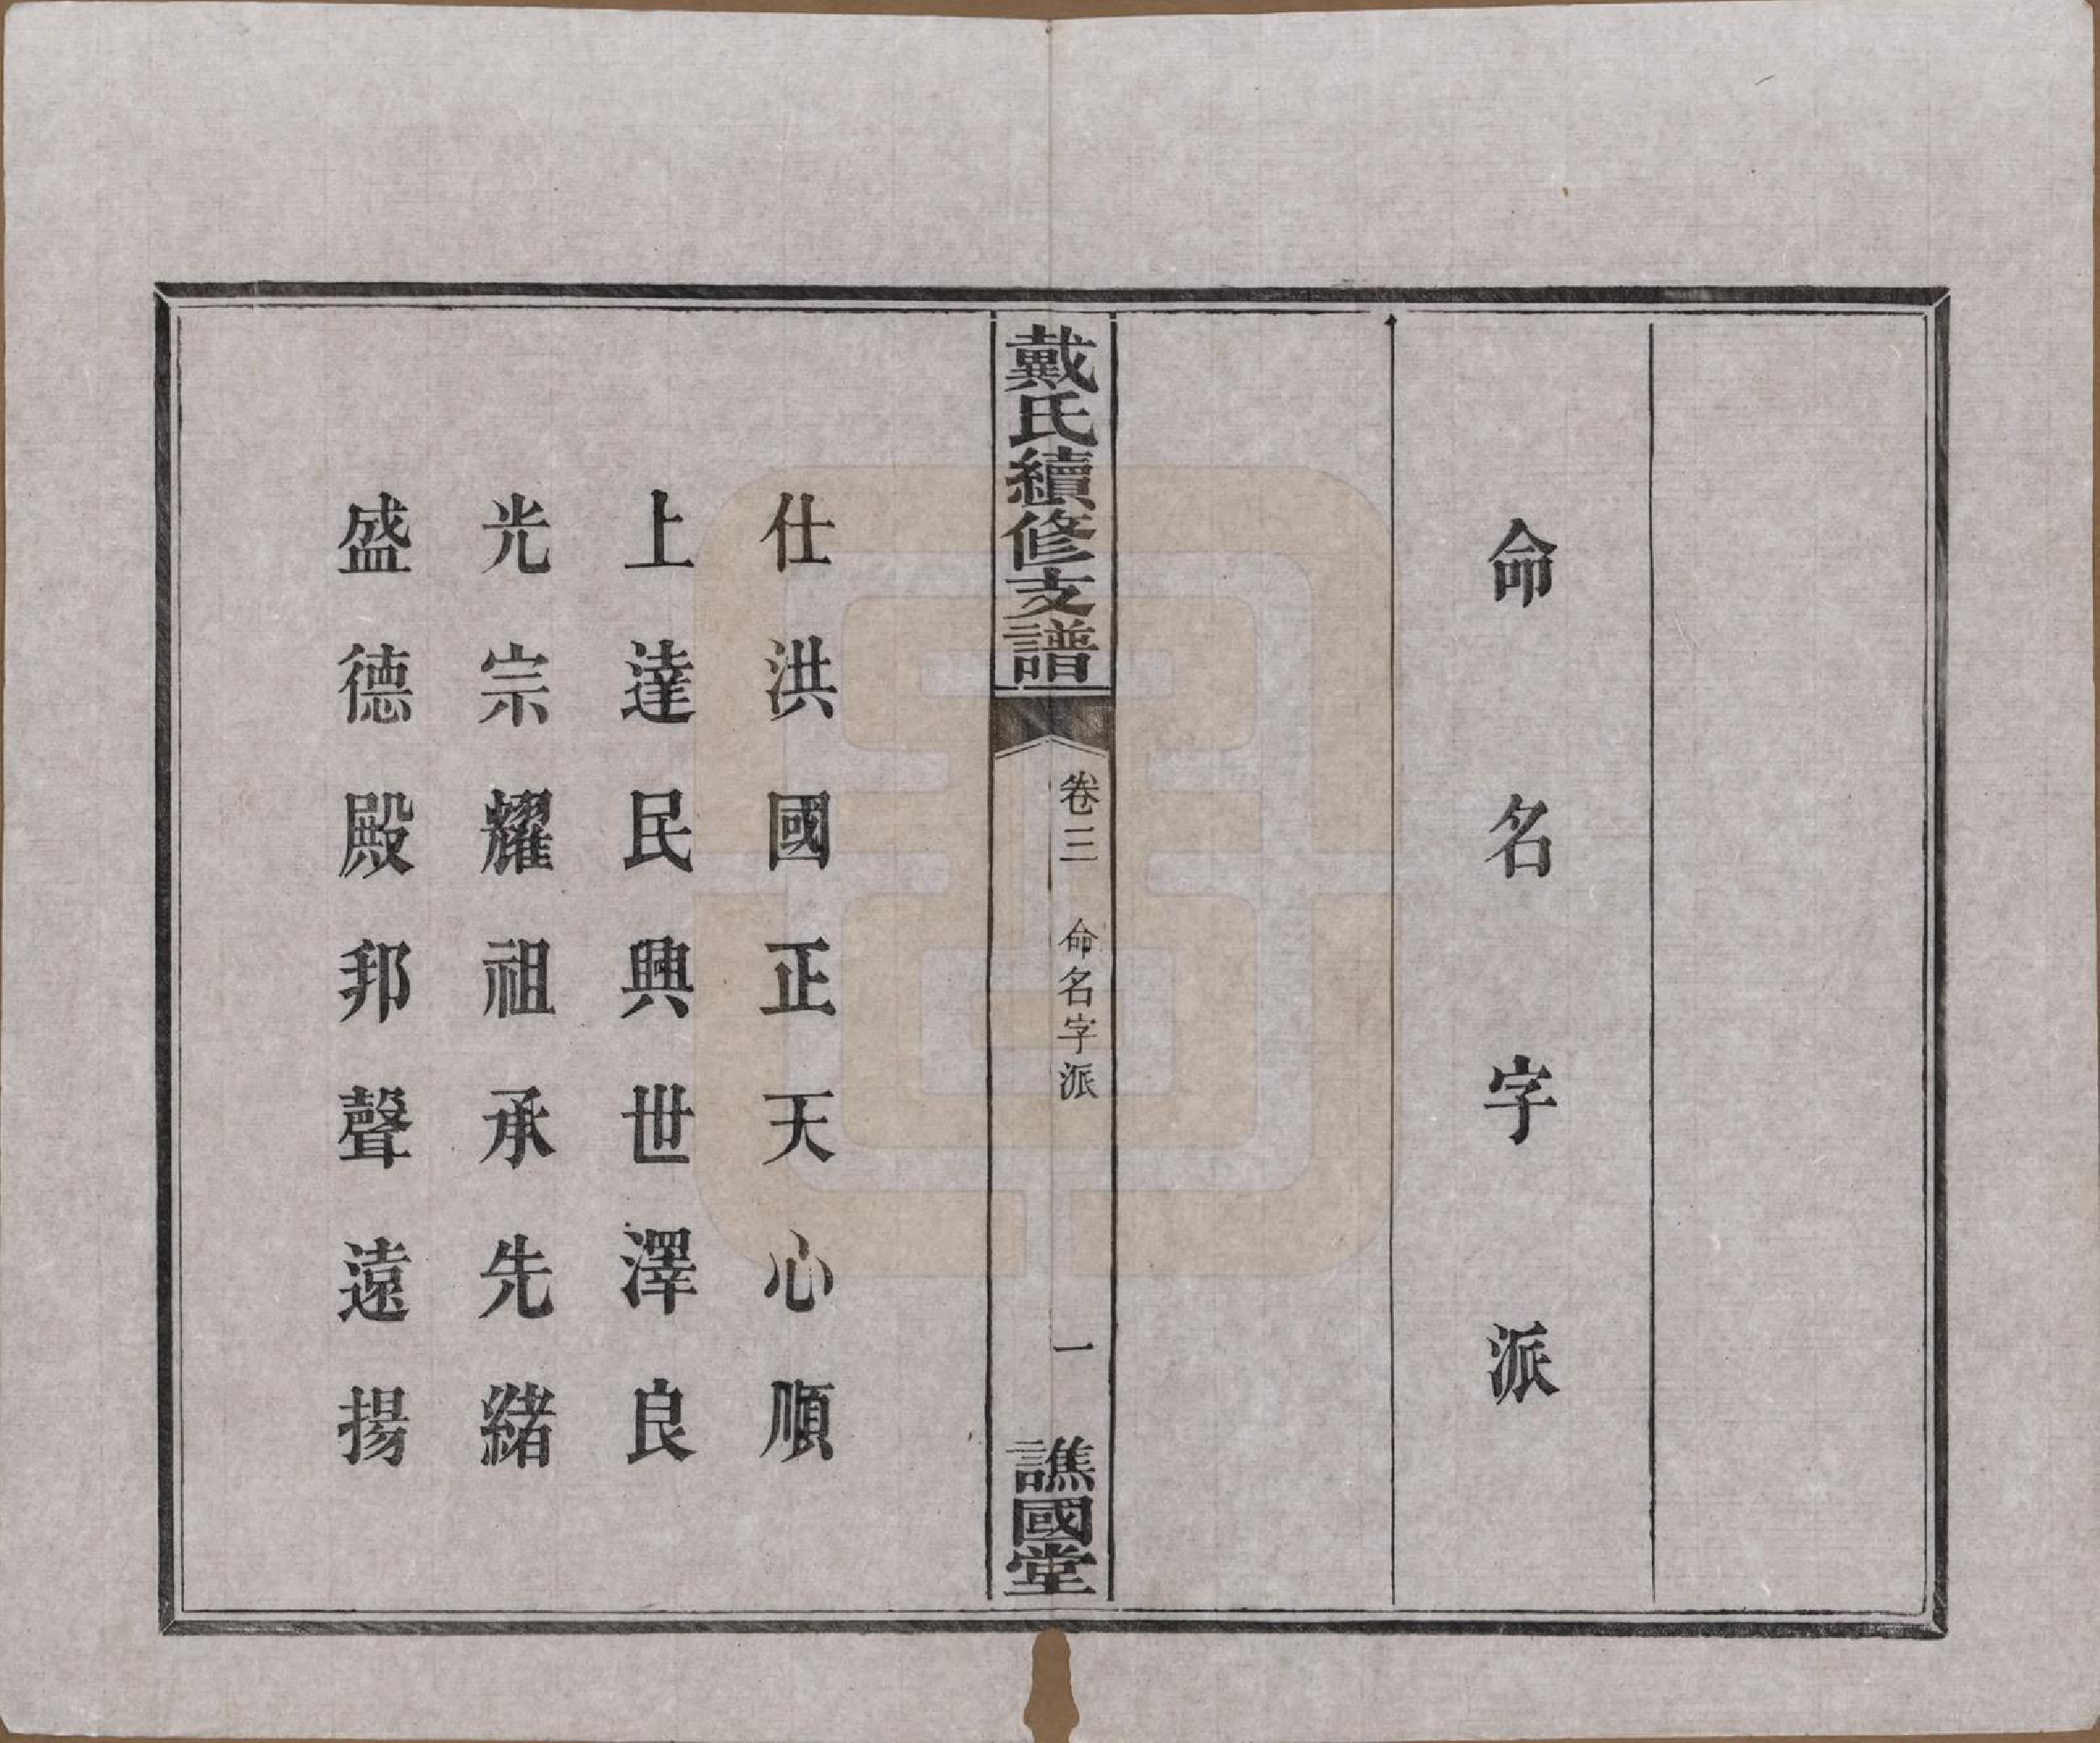 命名字派
戴氏續修支譜
卷三
命名字派
一
譙國堂
仕洪國正天心順
上達民興世澤良
光宗耀祖承先緒
盛德殿邦聲遠揚